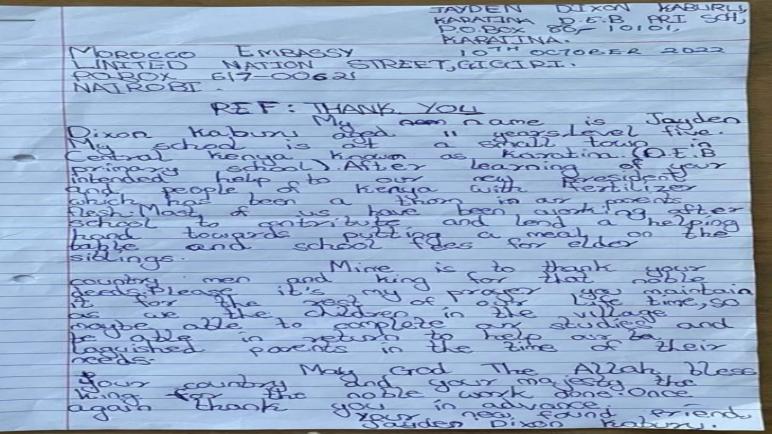 JAYDEN DIXON KABURU,
KARATINA D.E.B PRI SCH,
P.O.BOX 86-10101,
KARATINA.
MOROCCO EMBASSY 10TH OCTOBER 2022
UNITED NATION STREET, GIGIRI.
P.O.BOX 617-00621
NAIROBI.
REF: THANK YOU
My name is Jayden
Dixon Kaburu aged 11 years, level five.
My school is at a small town in
Central Kenya known as Karatina.(D.E.B
primary school). After learning of your
intended help to our new president
and people of Kenya with Fertilizer
which has been a thorn in our parents
flesh. Most of us have been working after
school to contribute and lend a helping
hand towards putting a meal on the
table and school fees for elder
siblings.
Mine is to thank your
country men and king for that noble
deeds. Please it's my prayer you maintain
it for the rest of our life time, so
as we the children in the village
maybe able to complete our studies and
be able in return to help our
parents in the time of their
needs.
May God The Allah bless
your country and your majesty the
king for the noble work done. Once
again thank you in advance.
Your new found friend
Jayden Dixon Kaburu.